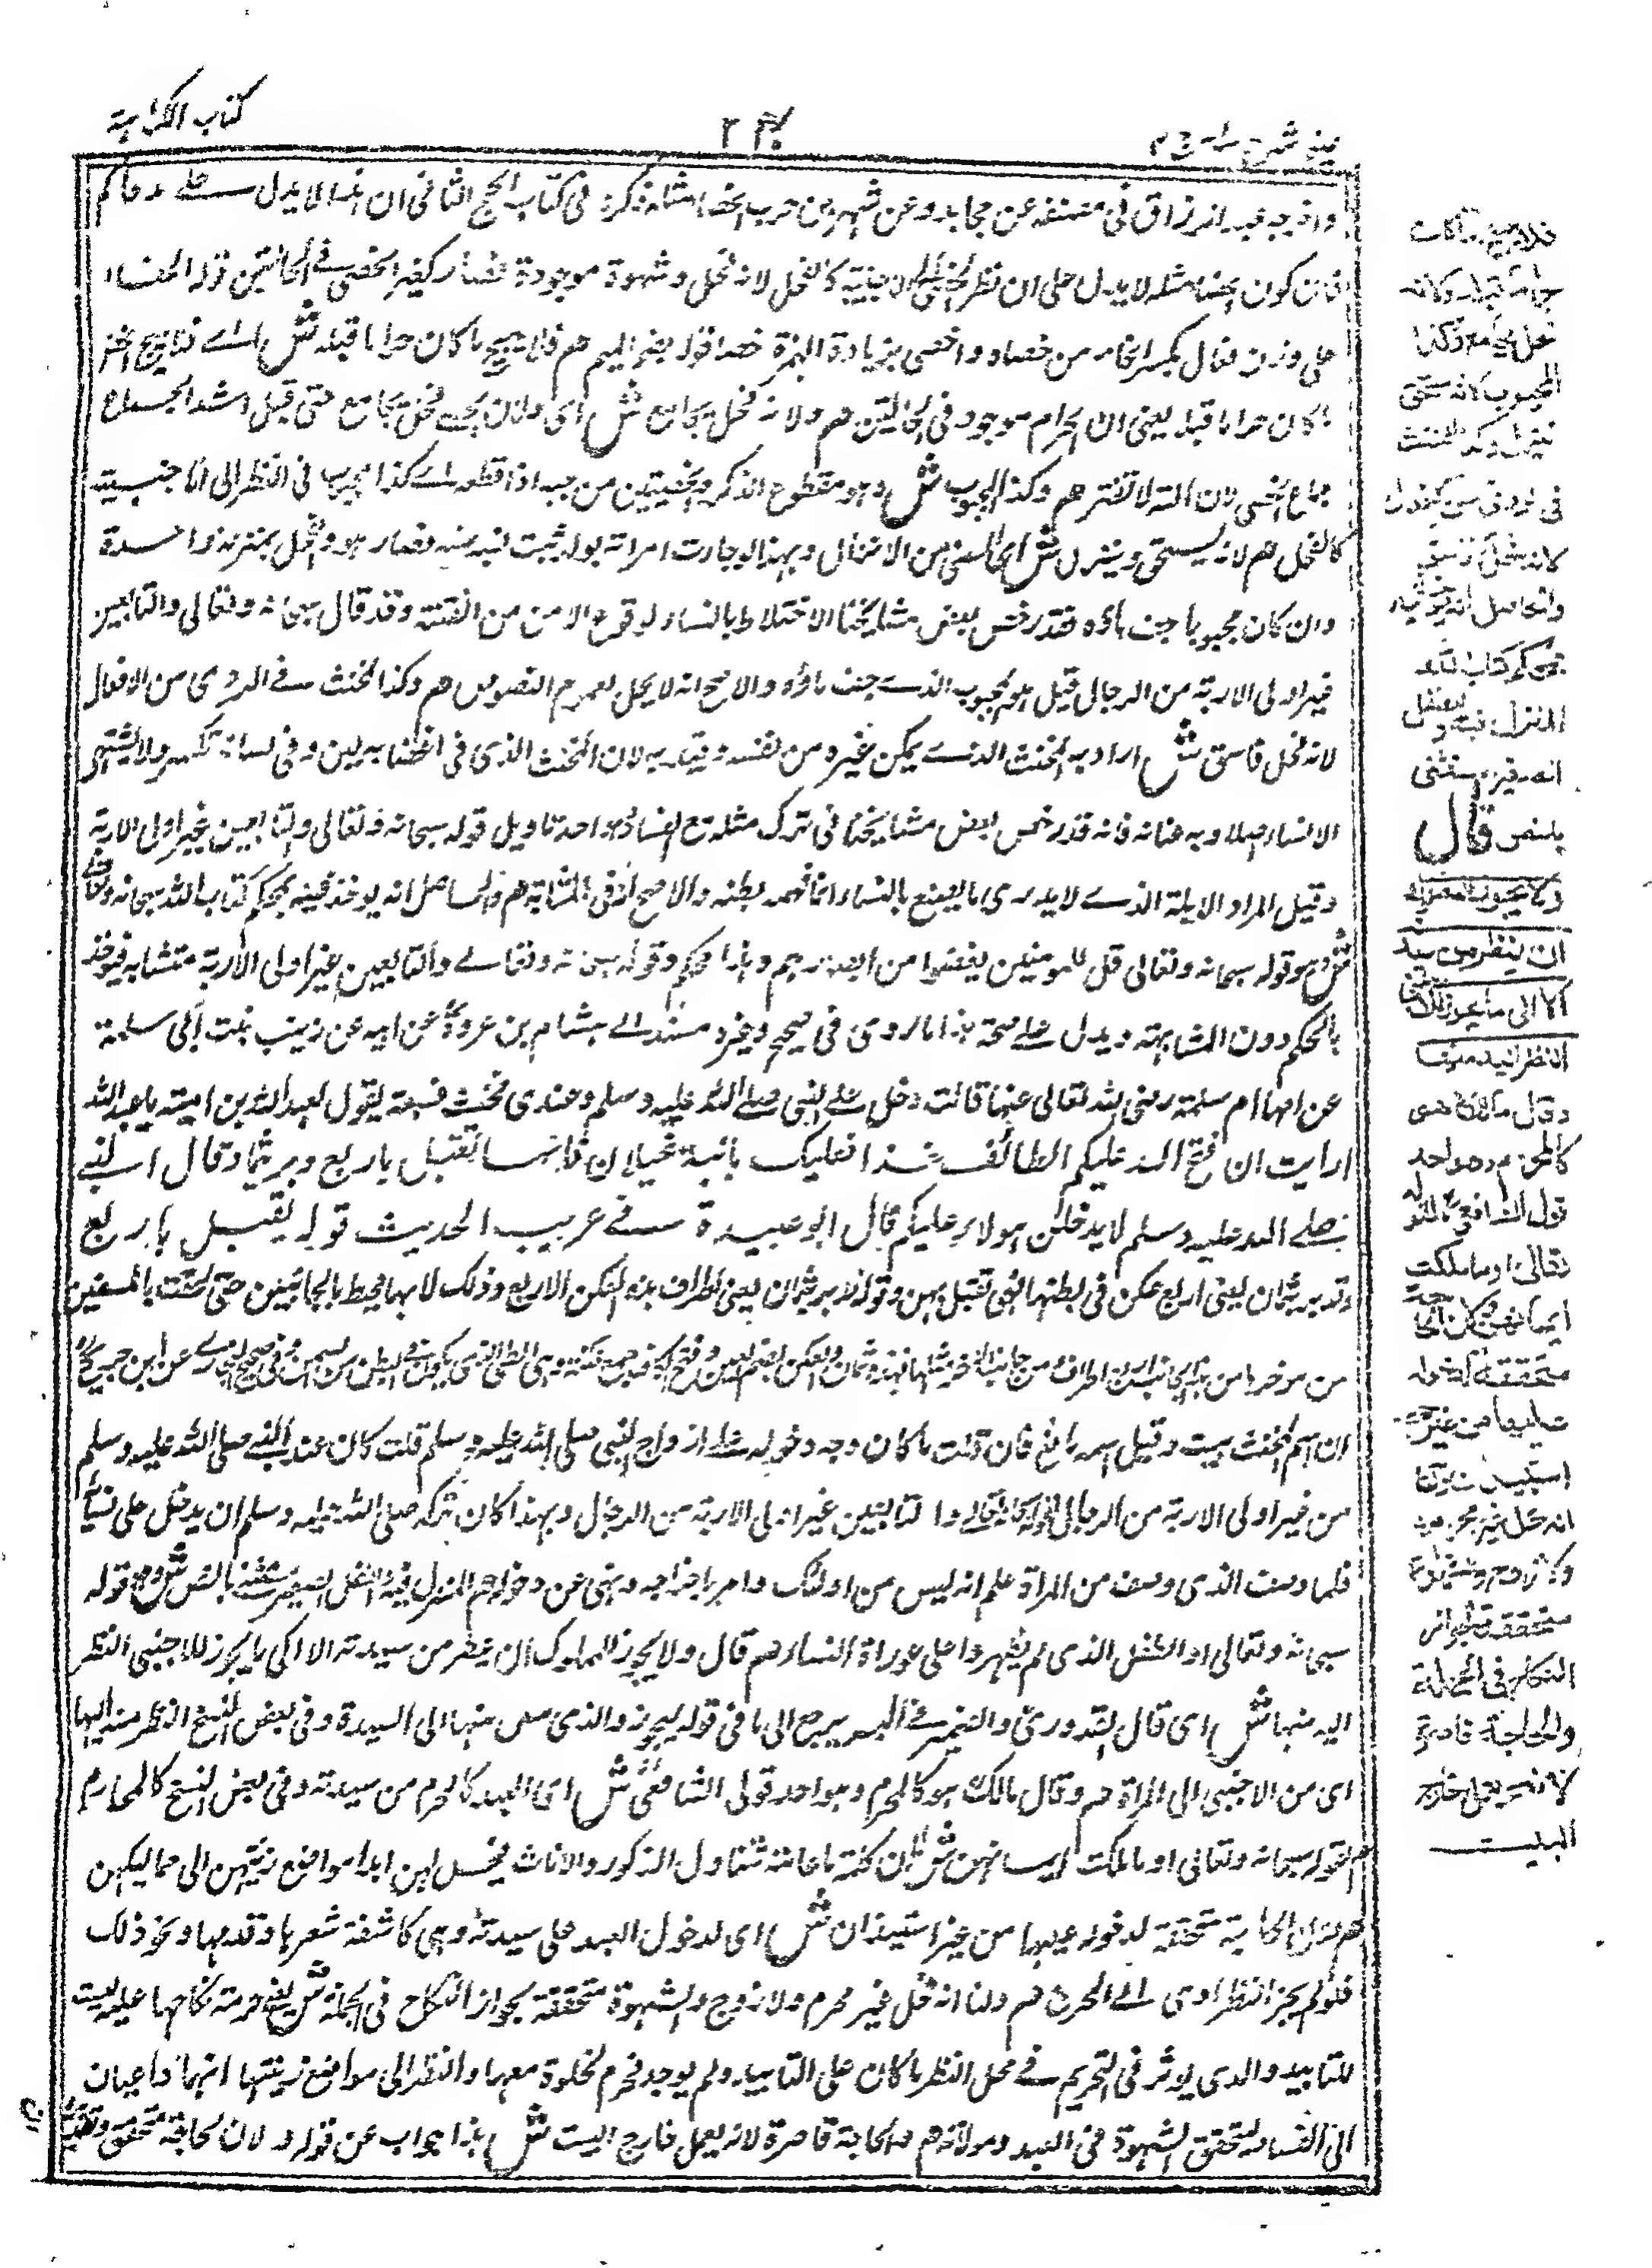 كتاب الكراهية
عيني شرح هداية ج ٤
واخرجه عبد الرزاق في مصنفه عن مجاهد وعن شهر بن حرب الخصاء مثلة ذكره في كتاب الحج الثاني ان هذا لا يدل على مدعاكم
فان كون الخصاء مثلة لا يدل على ان نظر الخصي الى الاجنبية كالفحل لانه فحل وشهوة موجودة فصار كغير الخصي في الحالتين قوله الخصاء
على وزن فعال بكسر الخاء من خصاه واخصى بزيادة الهمزة خطأ قوله م فلا يبيح ما كان حراما قبله ش اي فلا يبيح الخصاء
ما كان حراما قبله يعني ان الحرام موجود في الحالتين م ولانه فحل يجامع ش اي ولان الخصي فحل يجامع حتى قيل اشد الجماع
جماع الخصي لان آلته لا تفتر م وكذا المجبوب ش وهو مقطوع الذكر والخصيتين من جب اذا قطع اي كذا المجبوب في النظر الى الاجنبية
كالفحل م لانه يسحق وينزل ش اي المني من الانزال وبهذا لو جاءت امراته بولد يثبت نسبه منه فصار هو والفحل بمنزلة واحدة
وان كان مجبوبا جف ماؤه فقد رخص بعض مشايخنا الاختلاط بالنساء لوقوع الامن من الفتنة وقد قال سبحانه وتعالى والتابعين
غير اولى الاربة من الرجال قيل هو المجبوب الذي جف ماؤه والاصح انه لا يحل لعموم النصوص م وكذا المخنث في الردى من الافعال
لانه فحل فاسق ش اراد به المخنث الذي يمكن غيره من نفسه وقيد به لان المخنث الذي في اعضائه لين وفي لسانه تكسر ولا يشتهي
النساء اصلا فانه قد رخص بعض مشايخنا في ترك مثله مع النساء وهو احد تاويل قوله سبحانه وتعالى والتابعين غير اولى الاربة
وقيل المراد الابله الذي لا يدرى ما يصنع بالنساء انما همه بطنه والاصح انه في المتشابه م والحاصل انه يوخذ فيه بمحكم كتاب الله سبحانه وتعالى
ش وهو قوله سبحانه وتعالى قل للمومنين يغضوا من ابصارهم وهذا محكم وقوله سبحانه وتعالى والتابعين غير اولى الاربة متشابه فيوخذ
بالمحكم دون المتشابهة ويدل على صحة هذا ما روى في صحيح وغيره مسندا الى هشام بن عروة عن ابيه عن زينب بنت ابي سلمة
عن امها ام سلمة رضي الله تعالى عنها قالت دخل على النبي صلى الله عليه وسلم وعندي مخنث فسمعته يقول لعبد الله بن امية يا عبد الله
ارايت ان فتح الله عليكم الطائف غدا فعليك بابنة غيلان فانها تقبل باربع وتدبر بثمان وقال النبي
صلى الله عليه وسلم لا يدخلن هولاء عليكم قال ابو عبيدة في غريب الحديث قوله تقبل باربع
وتدبر بثمان يعني اربع عكن في بطنها فهي تقبل بهن وقوله تدبر بثمان يعني اطراف هذه العكن الاربع وذلك لانها محيط بالجانبين حتى لحقت بالمتنين
من موخرها من هذا الجانب اربعة اطراف ومن جانب الآخر مثلها فهذه ثمان والعكن بضم العين وفتح الكاف جمع عكنة وهي الطي الذي يكون في البطن من السمن وفي صحيح البخاري عن ابن جريج
ان اسم المخنث هيت وقيل اسمه ماتع فان قلت ما كان وجه دخوله على ازواج النبي صلى الله عليه وسلم قلت كان عند النبي صلى الله عليه وسلم
من غير اولى الاربة من الرجال والتابعين غير اولى الاربة من الرجال وبهذا كان تركه صلى الله عليه وسلم ان يدخل على نسائه
فلما وصف الذي وصف من المراة علم انه ليس من اولئك وامر باخراجه ونهى عن دخولهم المنزل فيه والطفل الصغير مستثنى بالنص ش وهو قوله
سبحانه وتعالى او الطفل الذي لم يظهروا على عورات النساء م قال ولا يجوز للمملوك ان ينظر من سيدته الا الى ما يجوز للاجنبي النظر
اليه منها ش اى قال القدوري والضمير في اليه يرجع الى ما في قوله يجوز والذي منها الى السيدة وفي بعض النسخ النظر منه اليها
اى من الاجنبي الى المراة م وقال مالك هو كالمحرم وهو احد قولى الشافعي ش اى العبد كالمحرم من سيدته وفي بعض النسخ كالمحارم
م لقوله سبحانه وتعالى او ما ملكت ايمانهن ش لان كلمة ما عامة تتناول الذكور والاناث فيحل لهن ابداء مواضع زينتهن الى مماليكهن
م ولان الحاجة متحققة لدخوله عليها من غير استيذان ش اى لدخول العبد على سيدته وهي كاشفة شعرها وقدميها ونحو ذلك
فلو لم يجز النظر ادى الى الحرج م ولنا انه فحل غير محرم ولا زوج والشهوة متحققة بجواز النكاح في الجملة ش يعني حرمة نكاحها عليه ليست
للتابيد والذي يوثر في التحريم في محل النظر ما كان على التابيد ولم يوجد فحرم الخلوة معها والنظر الى مواضع زينتها انهما داعيان
الى الفساد لتحقق الشهوة في العبد ومولاته م والحاجة قاصرة لانه يعمل خارج البيت ش هذا جواب عن قوله ولان الحاجة متحققة
فلا يبيح ما كان
حراما قبله ولانه
فحل يجامع وكذا
المجبوب لانه يسحق
وينزل وكذا المخنث
في الردى من الافعال
لانه فحل فاسق
والحاصل انه يوخذ فيه
بمحكم كتاب الله
المنزل فيه والطفل
الصغير مستثنى
بالنص قال
ولا يجوز للمملوك
ان ينظر من سيدته
الا الى ما يجوز للاجنبي
النظر اليه منها
وقال مالك هو
كالمحرم وهو احد
قولى الشافعي لقوله
تعالى او ما ملكت
ايمانهن ولان الحاجة
متحققة لدخوله
عليها من غير
استيذان ولنا
انه فحل غير محرم
ولا زوج والشهوة
متحققة لجواز
النكاح في الجملة
والحاجة قاصرة
لانه يعمل خارج
البيت